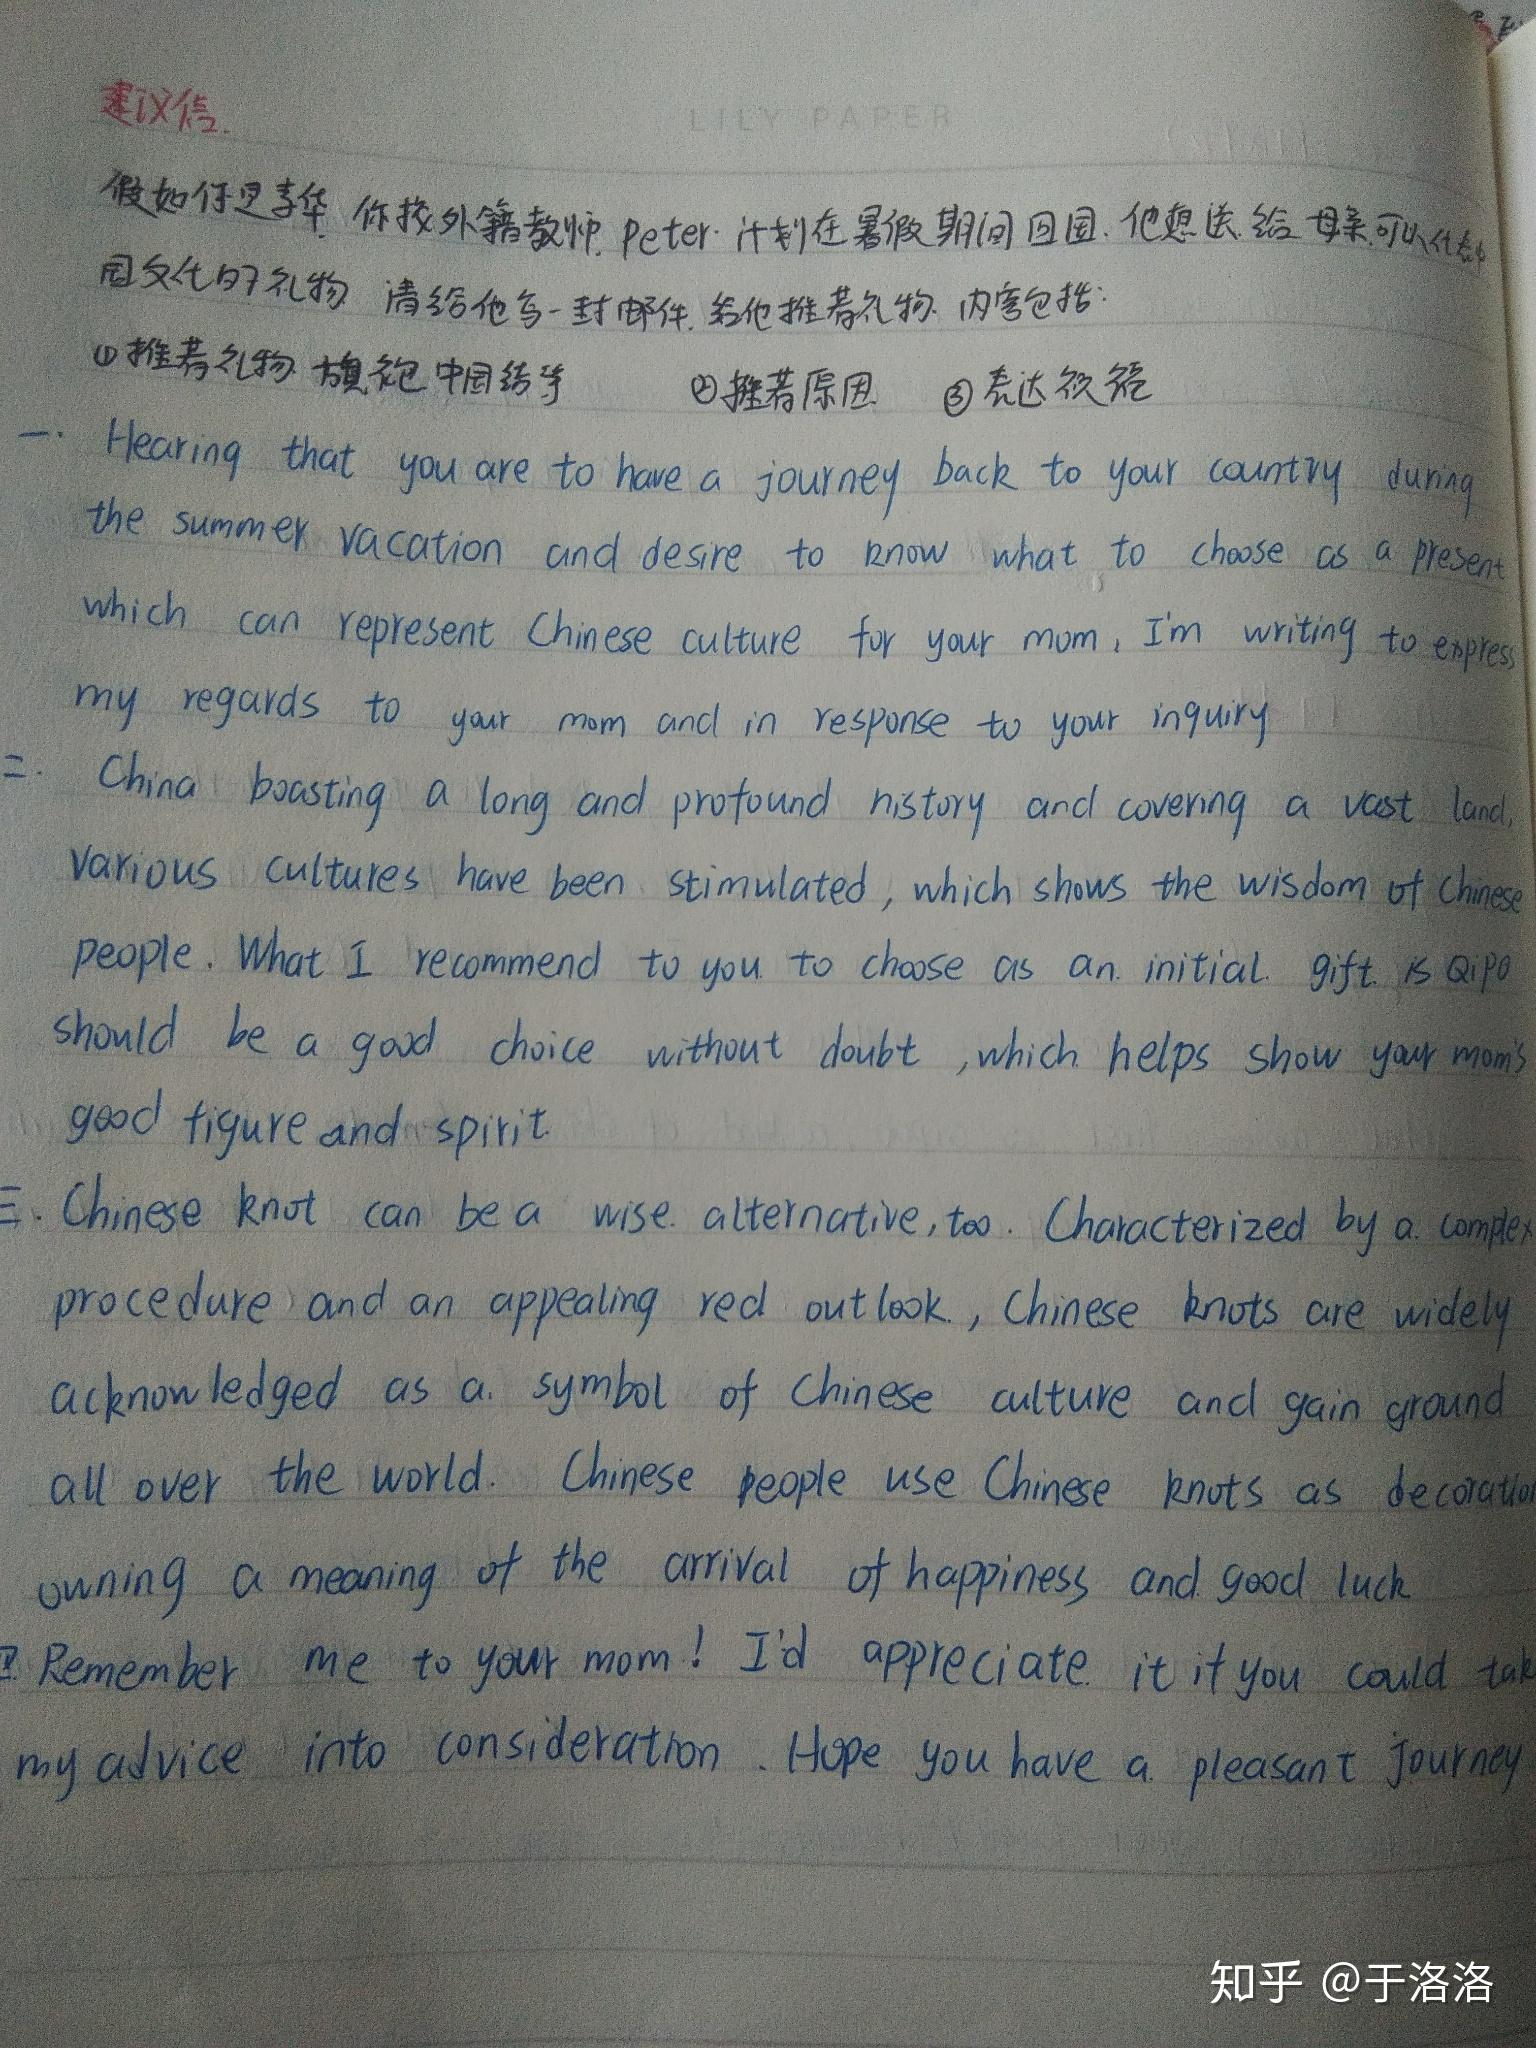 LILY PAPER
建议信.
假如你是李华 你校外籍教师 Peter 计划在暑假期间回国. 他想送给母亲可以代表中
国文化的礼物 请给他写一封邮件. 给他推荐礼物. 内容包括:
①推荐礼物 旗袍 中国结等 ②推荐原因 ③表达祝
一. Hearing that you are to have a journey back to your country during
the summer vacation and desire to know what to choose as a present
which can represent Chinese culture for your mom, I'm writing to express
my regards to your mom and in response to your inquiry
二. China boasting a long and profound history and covering a vast land,
various cultures have been stimulated, which shows the wisdom of Chinese
people. What I recommend to you to choose as an initial gift is QiPo
should be a good choice without doubt, which helps show your mom's
good figure and spirit
三. Chinese knot can be a wise alternative, too. Characterized by a complex
procedure and an appealing red outlook, Chinese knots are widely
acknowledged as a symbol of Chinese culture and gain ground
all over the world. Chinese people use Chinese knots as decoration
owning a meaning of the arrival of happiness and good luck
四 Remember me to your mom! I'd appreciate it if you could tak
my advice into consideration. Hope you have a pleasant journey
知乎 @于洛洛